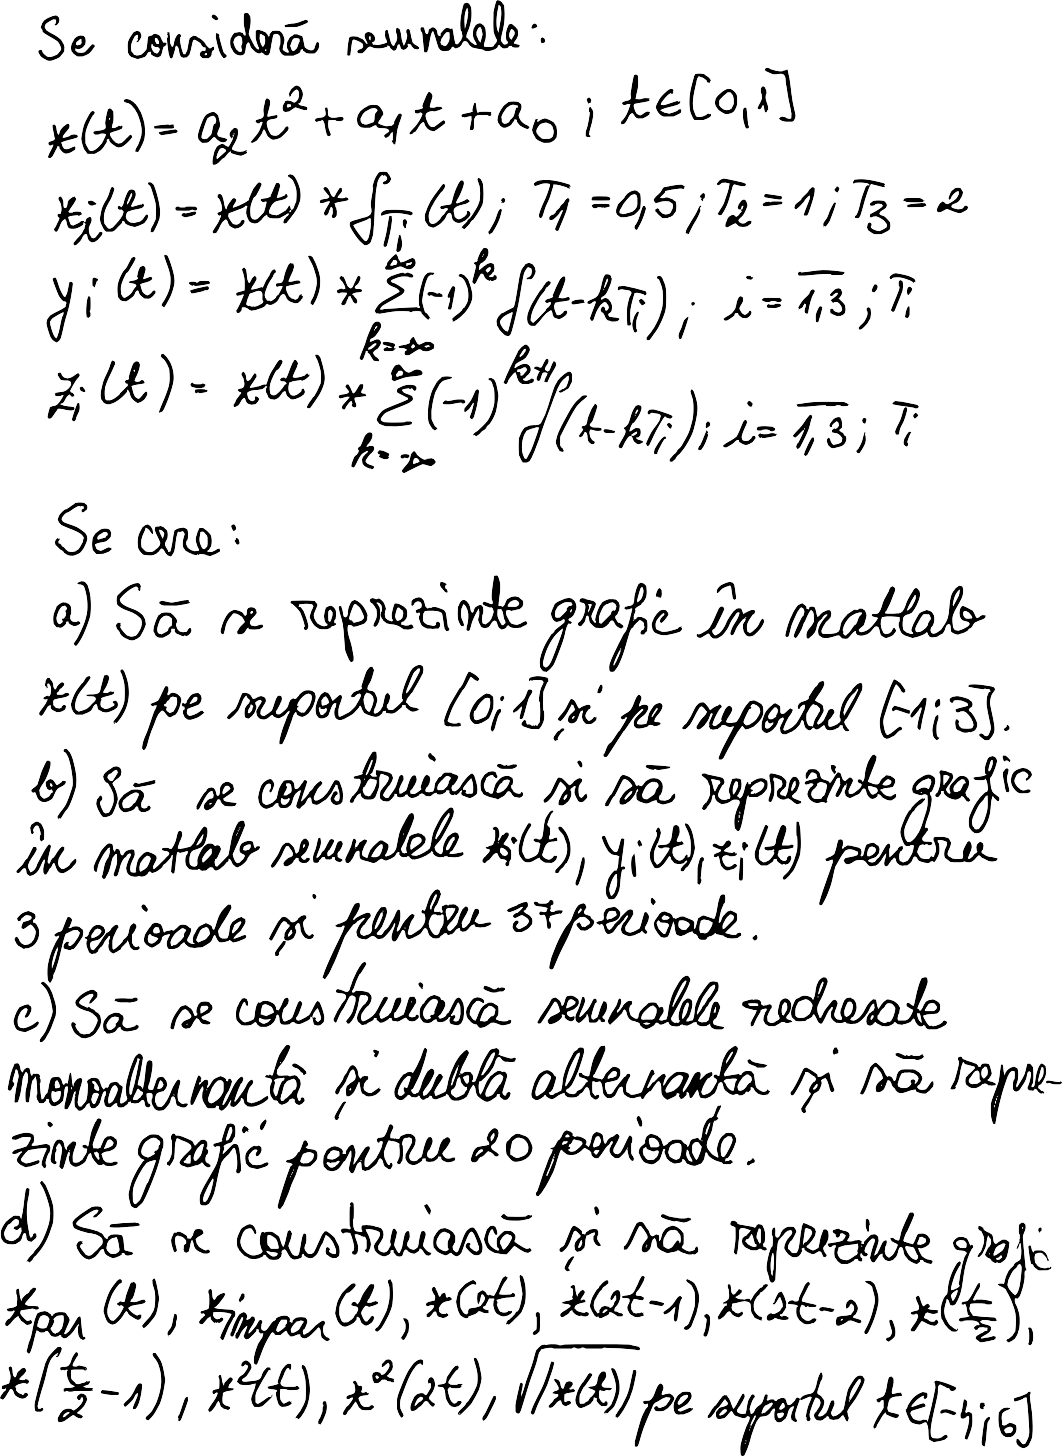 Se consideră semnalele:
x(t) = a₂t² + a₁t + a₀ ; t∈[0,1]
xᵢ(t) = x(t) * δ_Tᵢ(t); T₁ = 0,5 ; T₂ = 1 ; T₃ = 2
yᵢ(t) = x(t) * ∑_{k=-∞}^{∞} (-1)^k δ(t-kTᵢ); i = \overline{1,3} ; Tᵢ
zᵢ(t) = x(t) * ∑_{k=-∞}^{∞} (-1)^{k+1} δ(t-kTᵢ); i = \overline{1,3} ; Tᵢ
Se cere:
a) Să se reprezinte grafic în matlab
x(t) pe suportul [0;1] și pe suportul [-1;3].
b) Să se construiască și să reprezinte grafic
în matlab semnalele xᵢ(t), yᵢ(t), zᵢ(t) pentru
3 perioade și pentru 37 perioade.
c) Să se construiască semnalele redresate
monoalternanță și dublă alternanță și să repre-
zinte grafic pentru 20 perioade.
d) Să se construiască și să reprezinte grafic
x_par(t), x_impar(t), x(2t), x(2t-1), x(2t-2), x(t/2),
x(t/2-1), x²(t), x²(2t), √|x(t)| pe suportul t∈[-4;6]